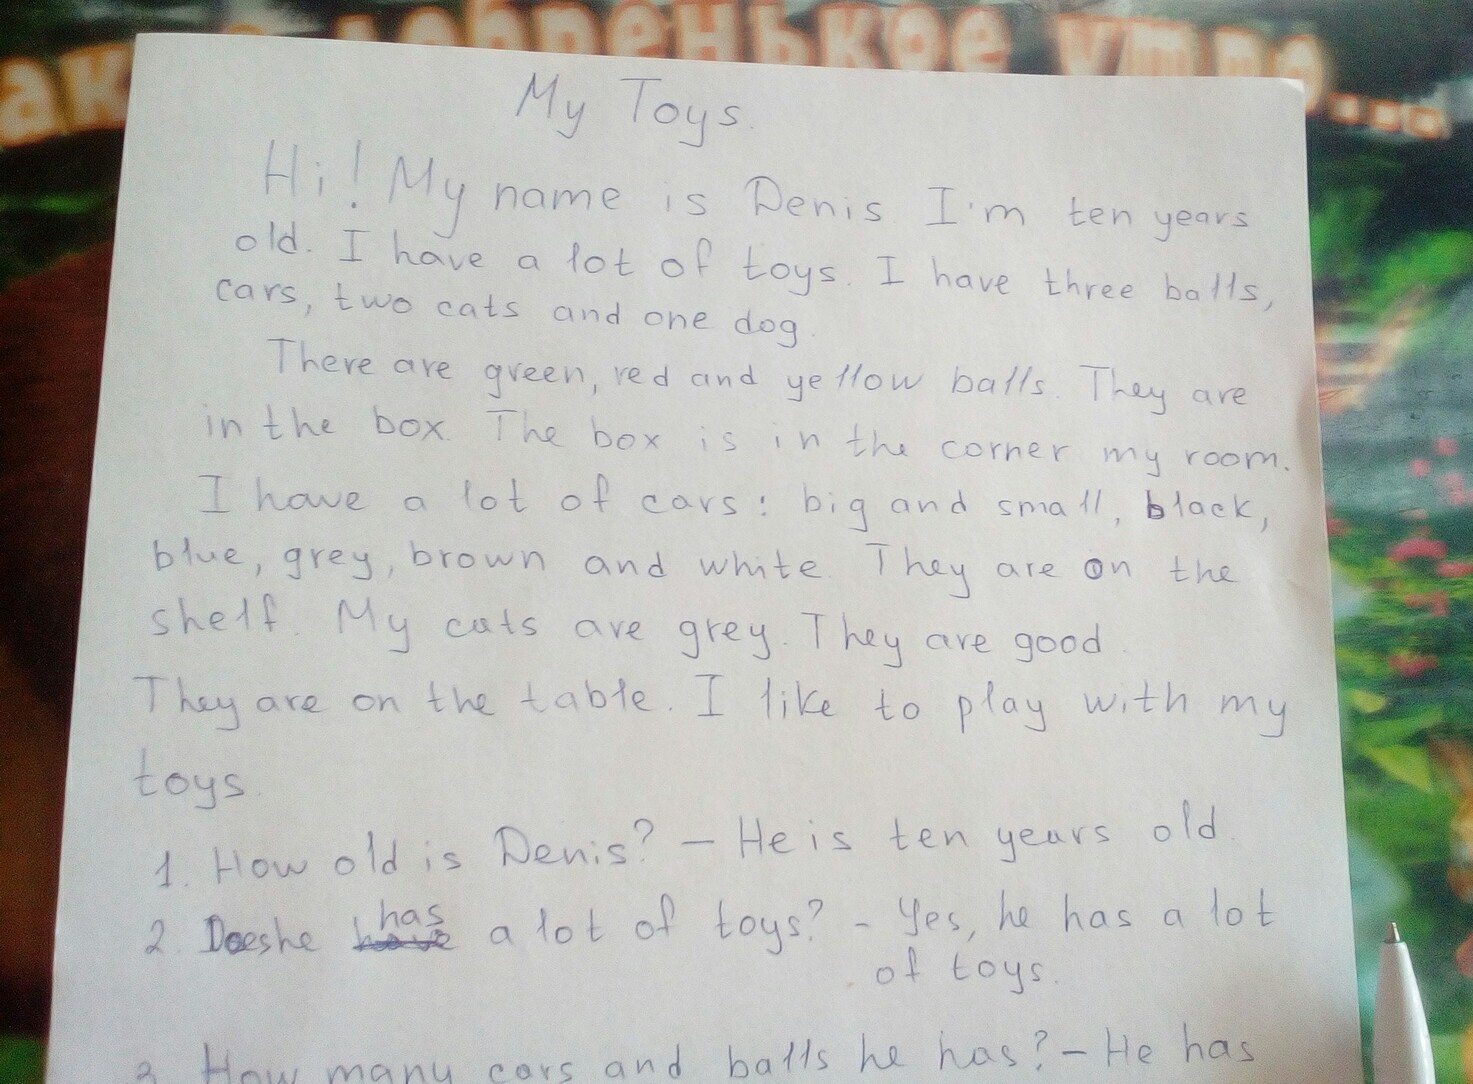 ак доbренькое утро...
My Toys.
Hi! My name is Denis. I'm ten years
old. I have a lot of toys. I have three balls,
cars, two cats and one dog.
There are green, red and yellow balls. They are
in the box. The box is in the corner my room.
I have a lot of cars: big and small, black,
blue, grey, brown and white. They are on the
shelf. My cats are grey. They are good.
They are on the table. I like to play with my
toys.
1. How old is Denis? – He is ten years old.
2. Does he has a lot of toys? - Yes, he has a lot
of toys.
3. How many cars and balls he has? – He has